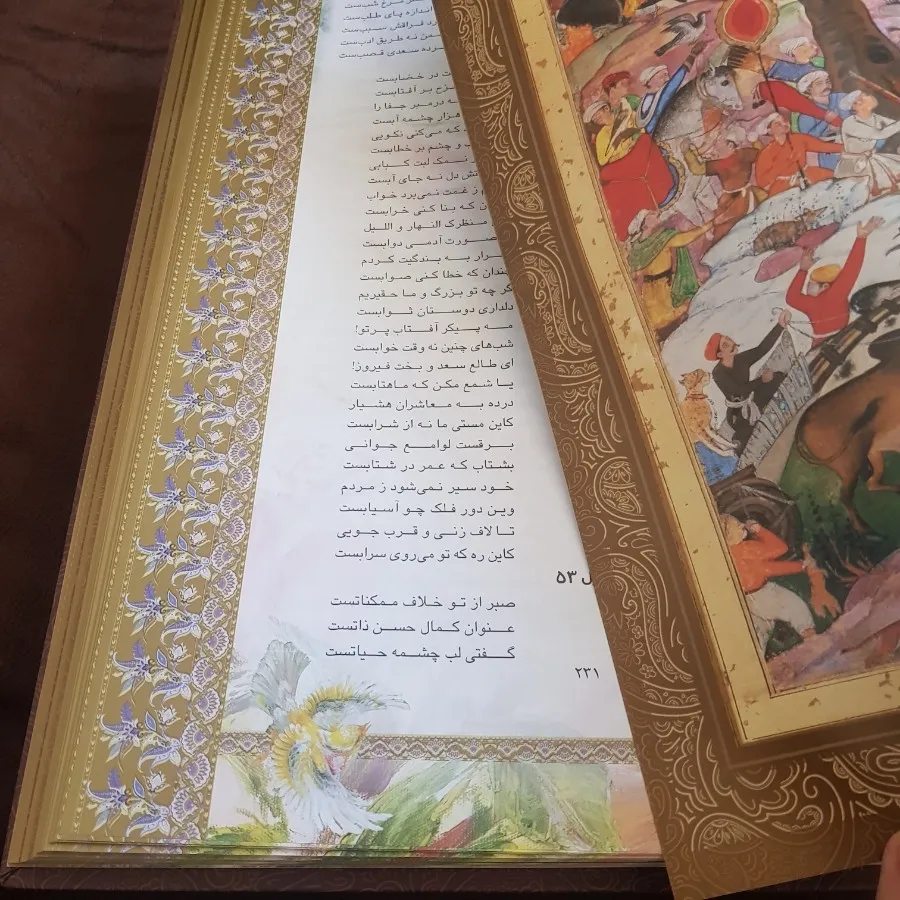 مرغ شب‌ست
اندازه پای طلب‌ست
فراقش سبب‌ست
نه طریق ادب‌ست
سعدی قصب‌ست
در خضابست
بر آفتابست
در مبر جفا را
هزار چشمه آبست
که می‌کنی نکویی
و چشم بر خطابست
نمک لبت کبابی
دل نه جای آبست
ز غمت نمی‌برد خواب
که بنا کنی خرابست
منظرک النهار و اللیل
صورت آدمی دوابست
به بندگیت کردم
چندان که خطا کنی صوابست
گر چه تو بزرگ و ما حقیریم
دلداری دوستان ثوابست
مه پیکر آفتاب پرتو!
شب‌های چنین نه وقت خوابست
ای طالع سعد و بخت فیروز!
یا شمع مکن که ماهتابست
درده به معاشران هشیار
کاین مستی ما نه از شرابست
برقست لوامع جوانی
بشتاب که عمر در شتابست
خود سیر نمی‌شود ز مردم
وین دور فلک چو آسیابست
تا لاف زنی و قرب جویی
کاین ره که تو می‌روی سرابست
ل ۵۳
صبر از تو خلاف ممکناتست
عنوان کمال حسن ذاتست
گفتی لب چشمه حیاتست
۲۳۱